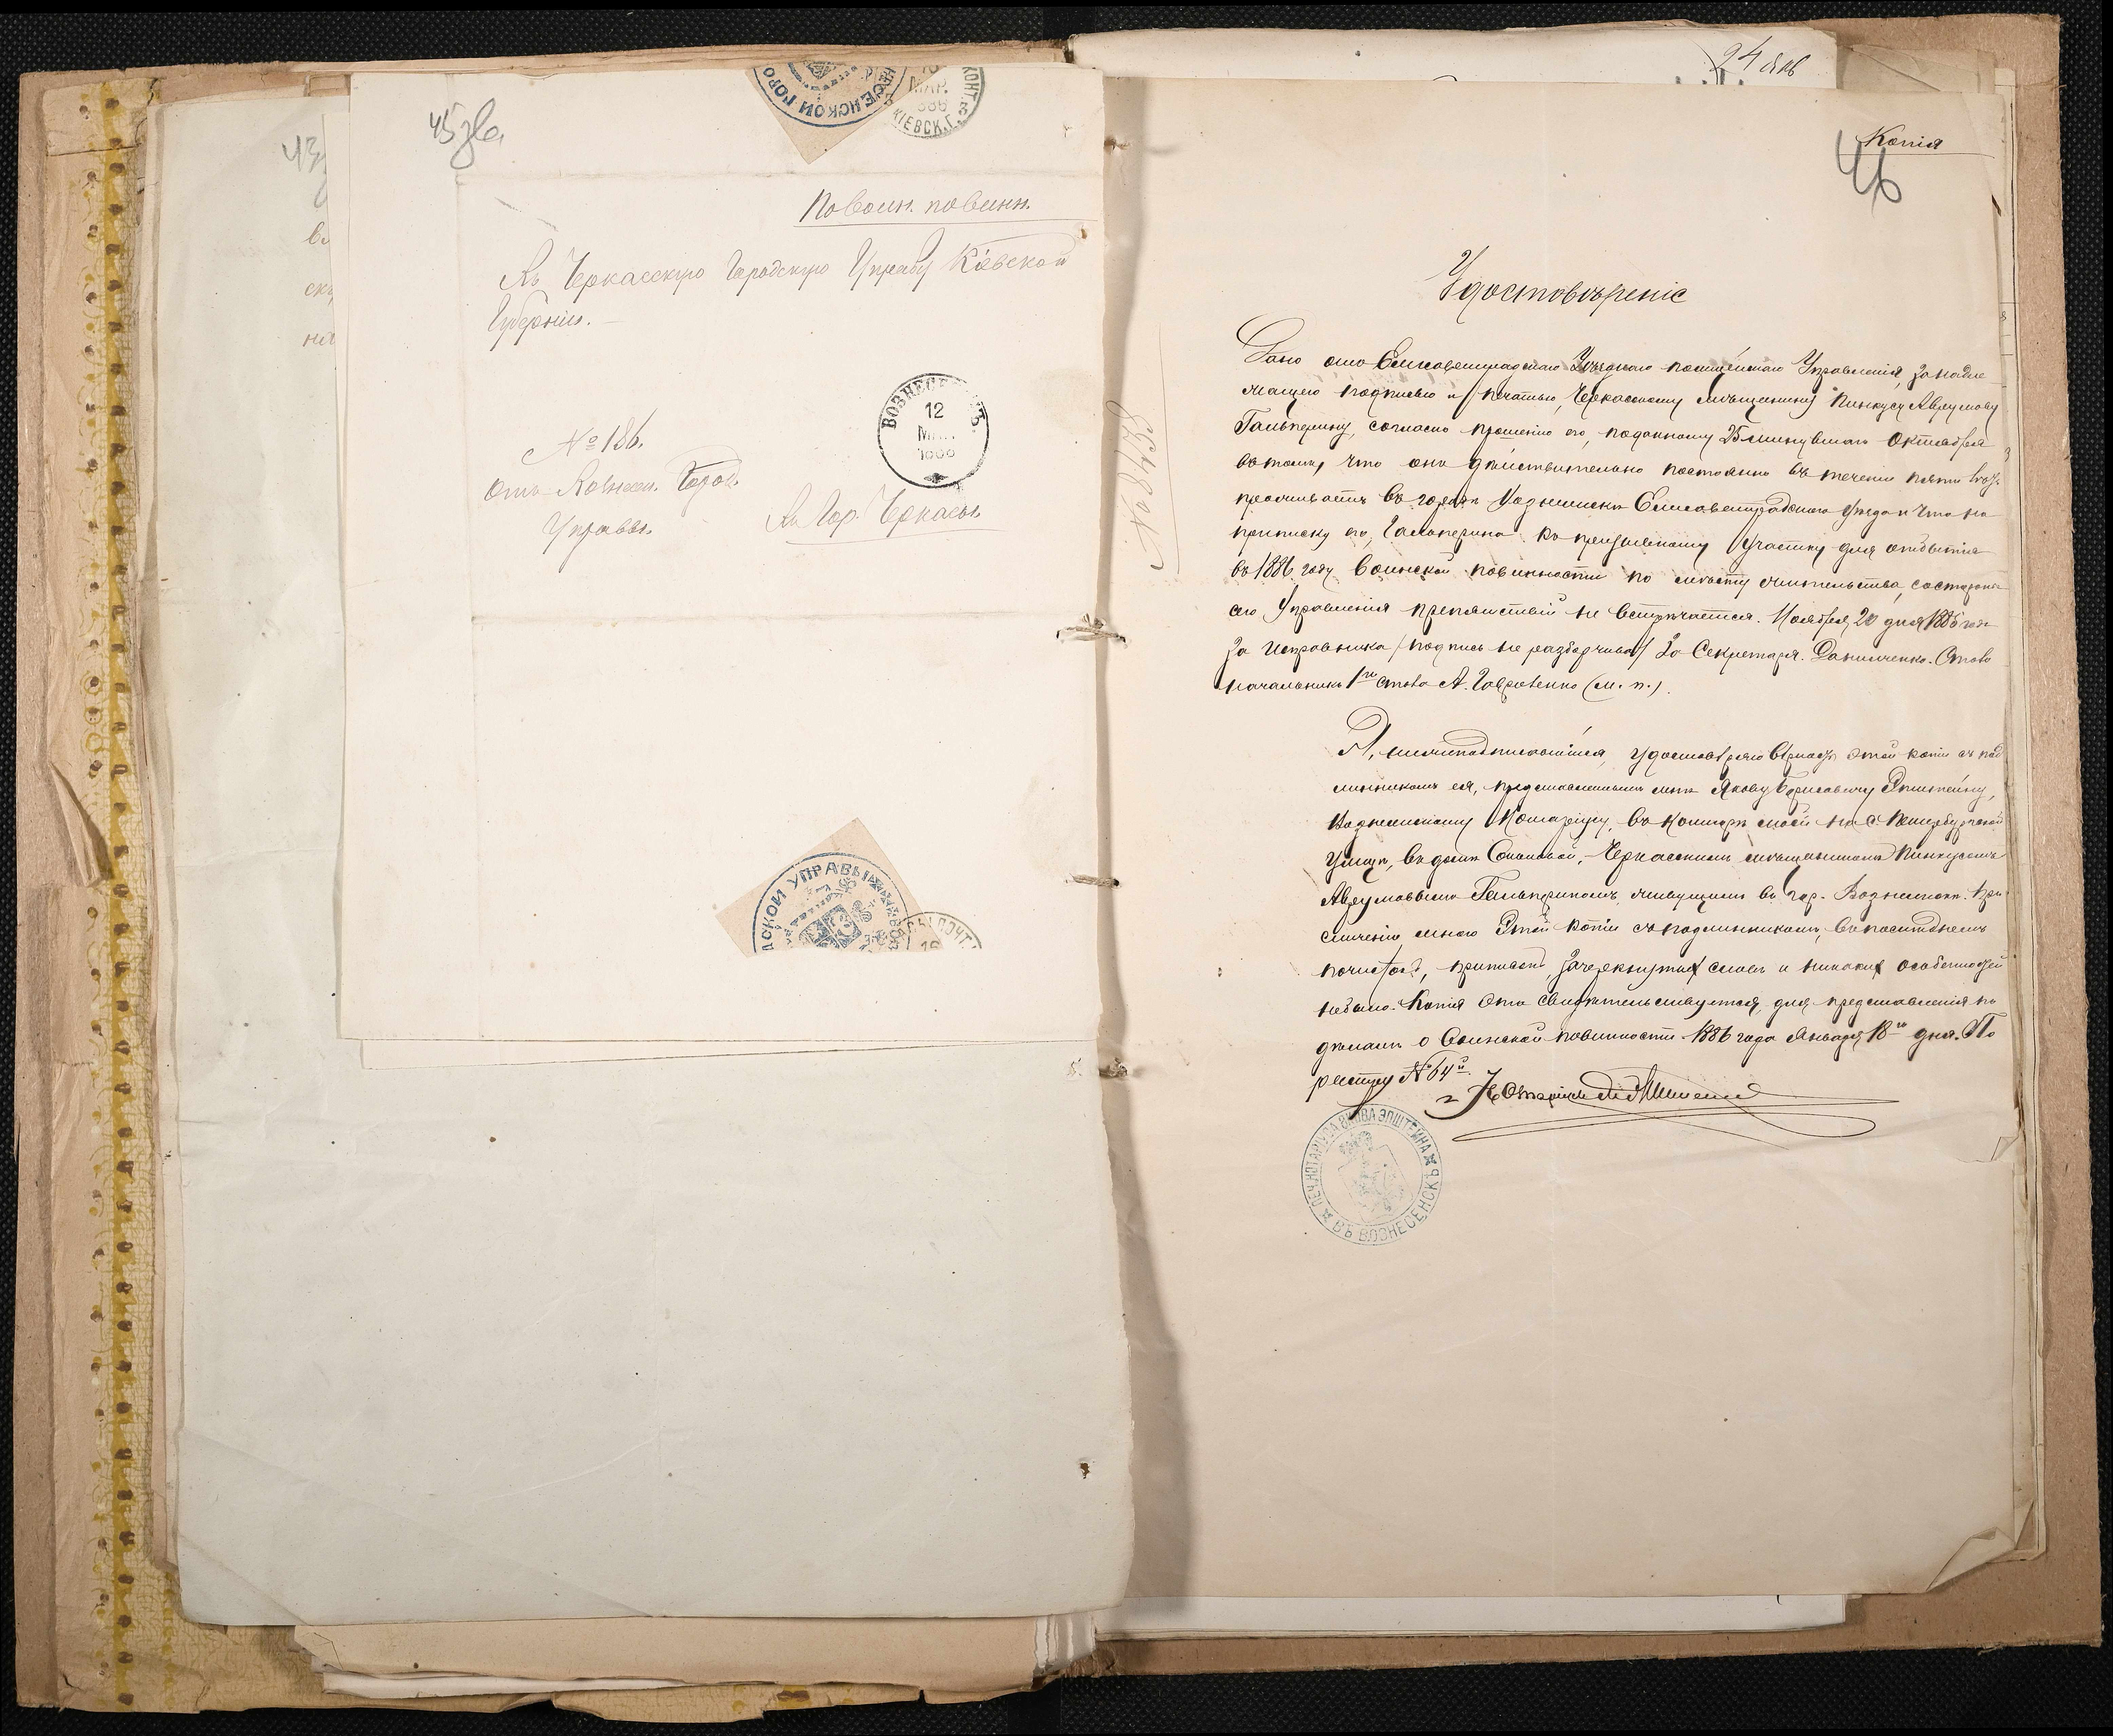 45 зв.
По воин. повинн.
Въ Черкасскую Городскую Управу Кіевской
Губерніи.
№ 186.
Отъ Вознесен. Город.
Управы.
Въ Гор. Черкасы
12
КІЕВСК. Г.
ДСКОЙ УПРАВЫ
24 янв
Копія
46
№ 8455
Удостовѣреніе
Дано отъ Елисаветградскаго Уѣзднаго полицейскаго Управленія, за надле
жащею подписью и печатью, Черкасскому мѣщанину Пинкусу Аврумову
Гальперину, согласно прошенію его, поданному 25 минувшаго Октября
въ томъ, что онъ дѣйствительно постоянно въ теченіи пяти
проживаетъ въ городѣ Вознесенскѣ Елисаветградскаго уѣзда и что на
приписку его, Гальперина къ призывному участку для отбытія
въ 1886 году воинской повинности по мѣсту жительства, со стороны
сего Управленія препятствій не встрѣчается. Ноября 20 дня 1885 года
За Исправника /подпись не разборчива/ За Секретаря. Данильченко. Столо
начальникъ 1го стола А. (М. п.).
Я, нижеподписавшійся, удостовѣряю вѣрность этой копіи съ под
линникомъ ея, представленнымъ мнѣ Якову Борисовичу Эпштейну,
Вознесенскому Нотаріусу, въ конторѣ моей на С. Петербургской
улицѣ, въ домѣ Черкасскимъ мѣщаниномъ Пинкусомъ
Аврумовымъ Гальперинымъ, живущимъ въ гор. Вознесенскѣ. При
сличеніи мною этой копіи съ подлинникомъ, въ послѣднемъ
почистокъ, приписокъ, зачеркнутыхъ словъ и никакихъ особенностей
не было. Копія эта свидѣтельствуется для представленія по
дѣламъ о воинской повинности. 1886 года Января 18го дня. По
реестру № 64й
Нотаріусъ Эпштейнъ
ПЕЧ. НОТАРІУСА ЯКОВА ЭПШТЕЙНА
ВЪ ВОЗНЕСЕНСКѢ